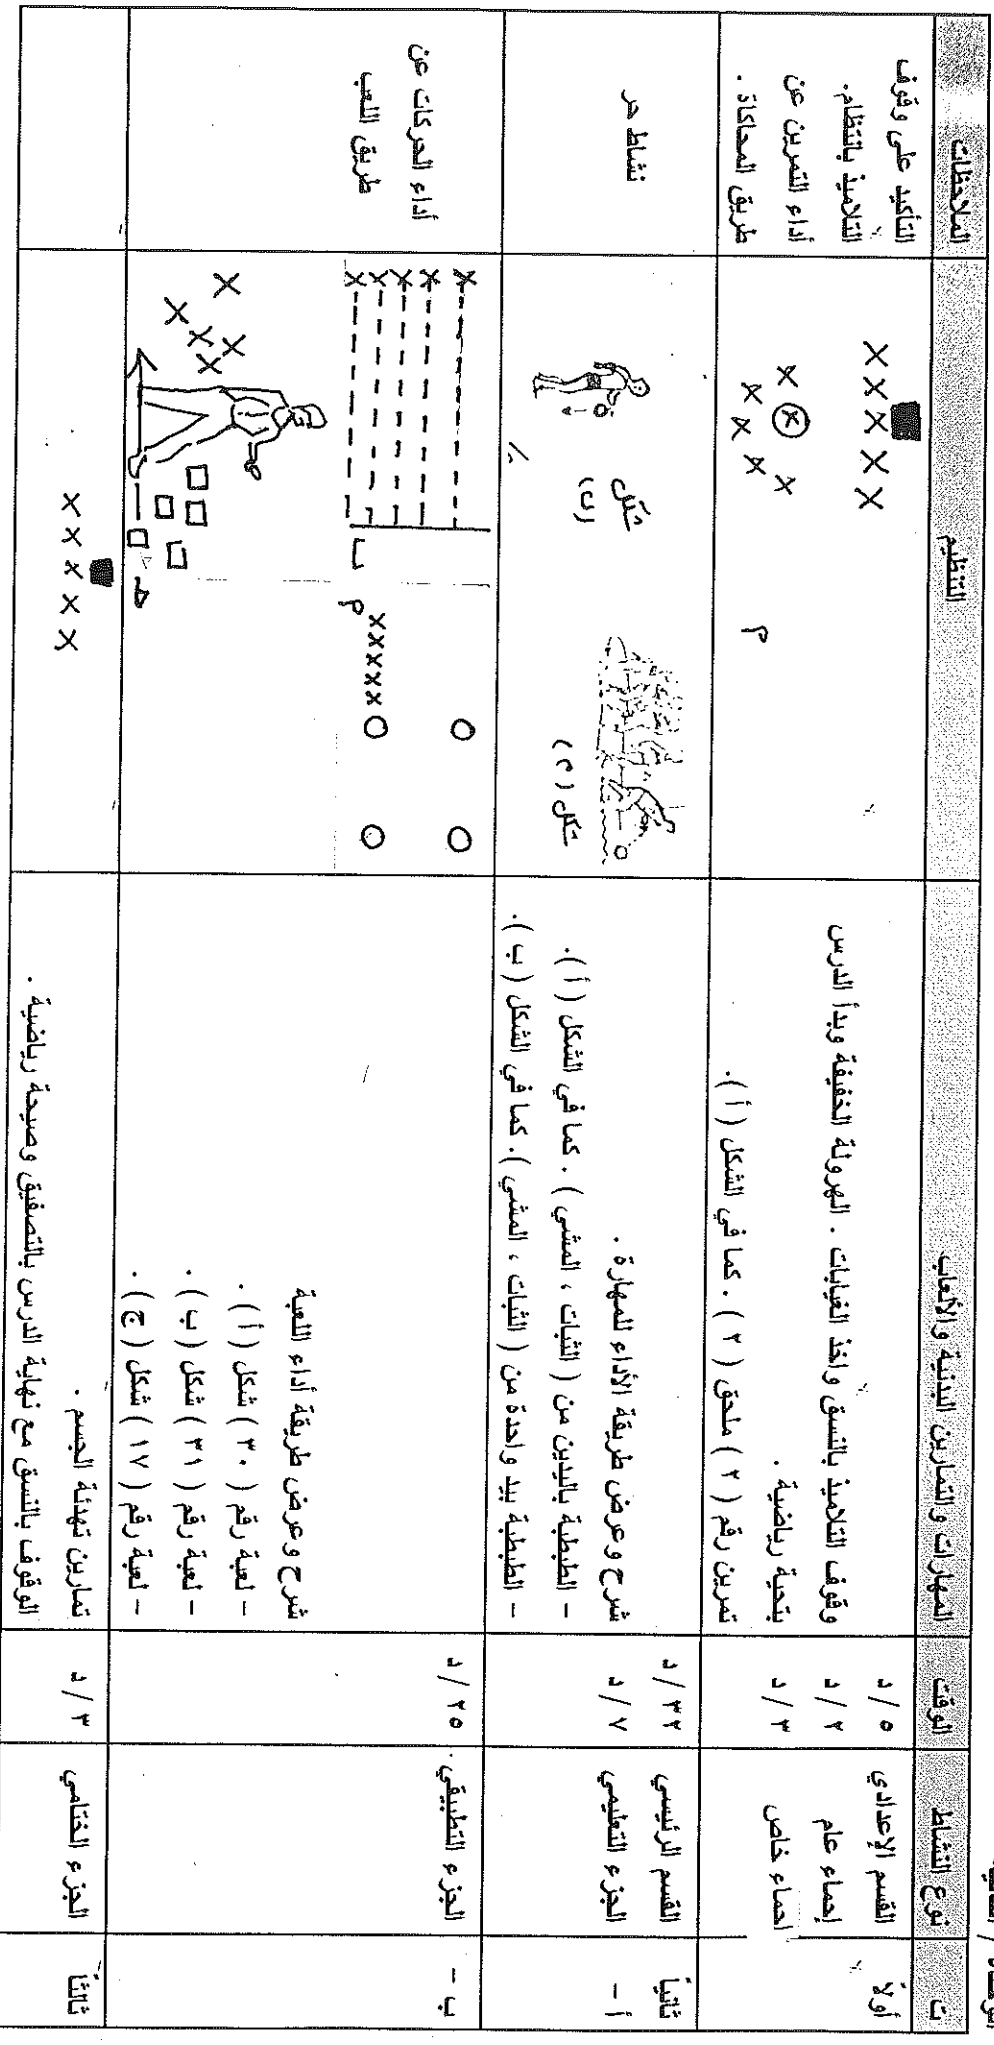 ت
نوع النشاط
الوقت
المهارات والتمارين البدنية والألعاب
التنظيم
الملاحظات
أولاً
القسم الإعدادي
إحماء عام
احماء خاص
٥ / د
٢ / د
٣ / د
وقوف التلاميذ بالنسق واخذ الغيابات . الهرولة الخفيفة وبدأ الدرس
بتحية رياضية .
تمرين رقم ( ٢ ) ملحق ( ٢ ) . كما في الشكل ( أ ).
× × × × ×
× × × × × × ×
م
التأكيد على وقوف
التلاميذ بانتظام.
أداء التمرين عن
طريق المحاكاة .
ثانياً
أ -
القسم الرئيسي
الجزء التعليمي
٣٢ / د
٧ / د
شرح وعرض طريقة الأداء للمهارة .
- الطبطبة باليدين من ( الثبات ، المشي ) . كما في الشكل ( أ ).
- الطبطبة بيد واحدة من ( الثبات ، المشي ). كما في الشكل ( ب ).
شكل ( م )
شكل
نشاط حر
ب -
الجزء التطبيقي.
٢٥ / د
شرح وعرض طريقة أداء اللعبة
- لعبة رقم ( ٣٠ ) شكل ( أ ) .
- لعبة رقم ( ٣١ ) شكل ( ب ) .
- لعبة رقم ( ١٧ ) شكل ( ج ) .
م
ب
أداء الحركات عن
طريق اللعب
ثالثاً
الجزء الختامي
٣ / د
تمارين تهدئة الجسم .
الوقوف بالنسق مع نهاية الدرس بالتصفيق وصيحة رياضية .
× × × × ×